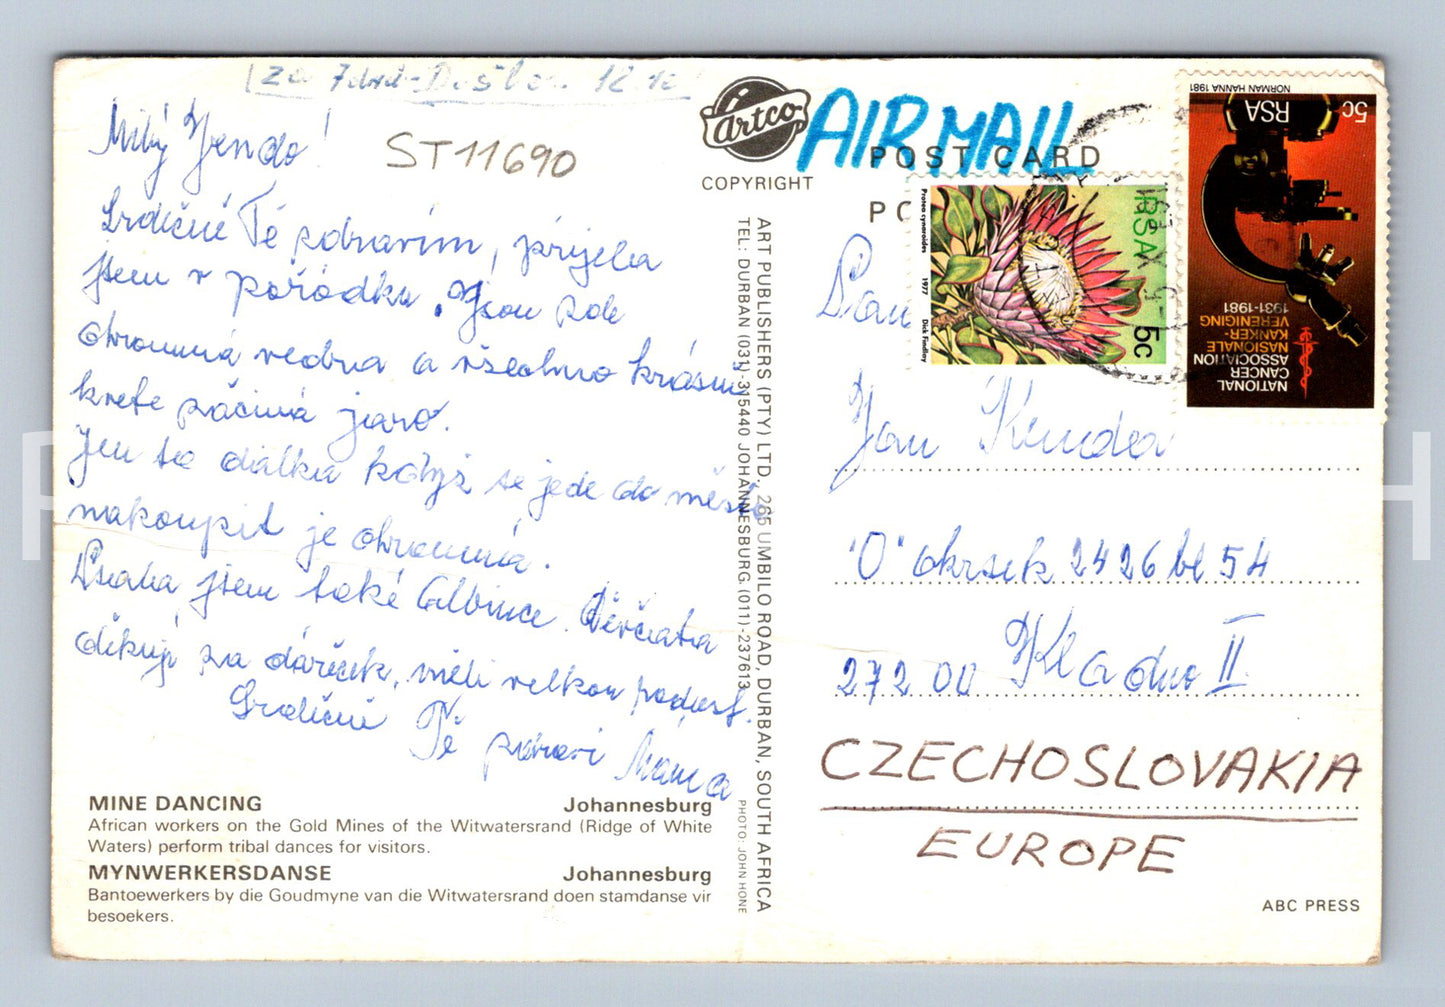 za 7 dní - Došlo 12.10
Milý Jendo!
ST11690
Srdečně Tě zdravím, přijela
jsem v pořádku. Jsou zde
ohromná vedra a všechno krásně
kvete začíná jaro.
Jen ta dálka když se jede do města
nakoupit je ohromná.
Psala jsem také Albince. Děvčata
děkují za dáreček, měli velkou radost.
Srdečně Tě zdraví Máňa
MINE DANCING Johannesburg
African workers on the Gold Mines of the Witwatersrand (Ridge of White
Waters) perform tribal dances for visitors.
MYNWERKERSDANSE Johannesburg
Bantoewerkers by die Goudmyne van die Witwatersrand doen stamdanse vir
besoekers.
Artco
COPYRIGHT
ART PUBLISHERS (PTY) LTD., 265 UMBILO ROAD, DURBAN, SOUTH AFRICA
TEL: DURBAN (031)-315440 JOHANNESBURG (011)-237613
PHOTO: JOHN HONE
AIR MAIL
POST CARD
Protea cynaroides 1977 Dick Findlay
RSA
5c
NORMAN HANNA 1981
RSA
5c
1931-1981
VERENIGING
KANKER-
NASIONALE
ASSOCIATION
CANCER
NATIONAL
Pan
Jan Kendea
"O" okrsek 2426 bl 54
272 00 Kladno II
CZECHOSLOVAKIA
EUROPE
ABC PRESS